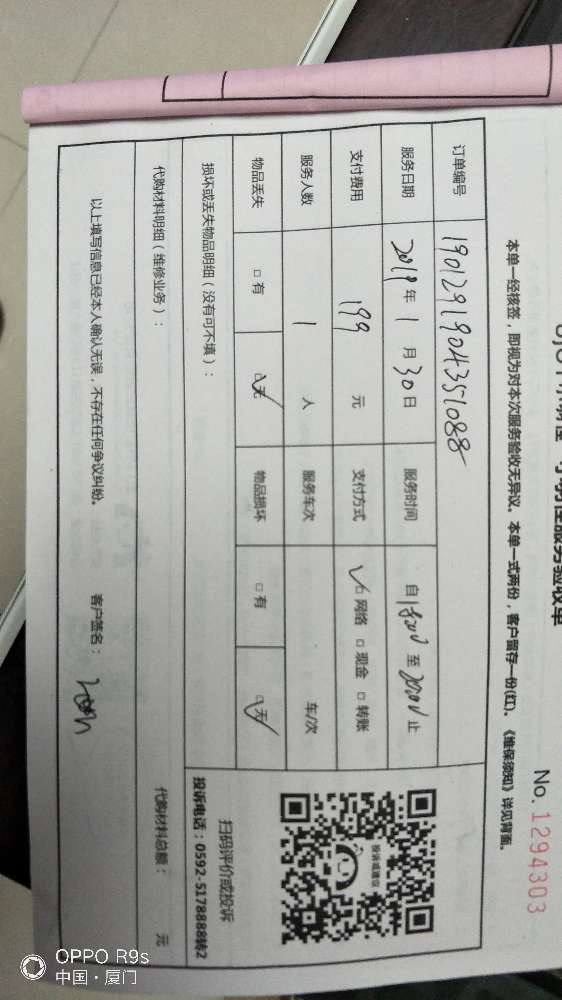 小男柱服务验收单
No. 1294303
本单一经核签，即视为对本次服务验收无异议。本单一式两份，客户留存一份(红)。《维保须知》详见背面。
订单编号 1901291904351088
服务日期 2019年 1 月 30 日 服务时间 自 至 止
支付费用 199 元 支付方式 □ 网络 □ 现金 □ 转账
服务人数 1 人 服务车次 车/次
物品丢失 □ 有 □ 无 物品损坏 □ 有 □ 无
损坏或丢失物品明细（没有可不填）：
代购材料明细（维修业务）：
代购材料总额： 元
以上填写信息已经本人确认无误，不存在任何争议纠纷。 客户签名：
投诉或建议
扫码评价或投诉
投诉电话：0592-5178888转2
OPPO R9s
中国·厦门